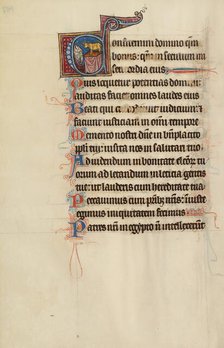 Confitemini domino qm
bonus: qm in seculum mi
sericordia eius
Quis loquetur potencias domini
auditas faciet omnes laudes eius
Beati qui custodiunt iudicium: et
faciunt iusticiam in omni tempore
Memento nostri dñe in bñplacito
ppli tui: in salutari tuo
Ad uidendum in bonitate electorum
tuorum ad letandum in leticia gentis
tue: ut lauderis cum hereditate tua
Peccauimus cum patribus nris: iniuste
egimus iniquitatem fecimus
Patres nri in egypto nõ intellexerunt